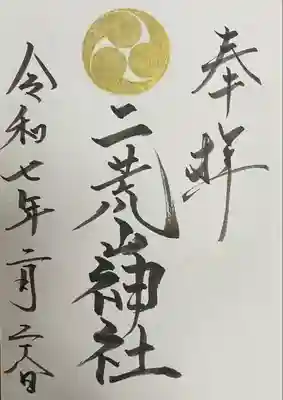 奉拝
二荒山神社
令和七年二月二八日